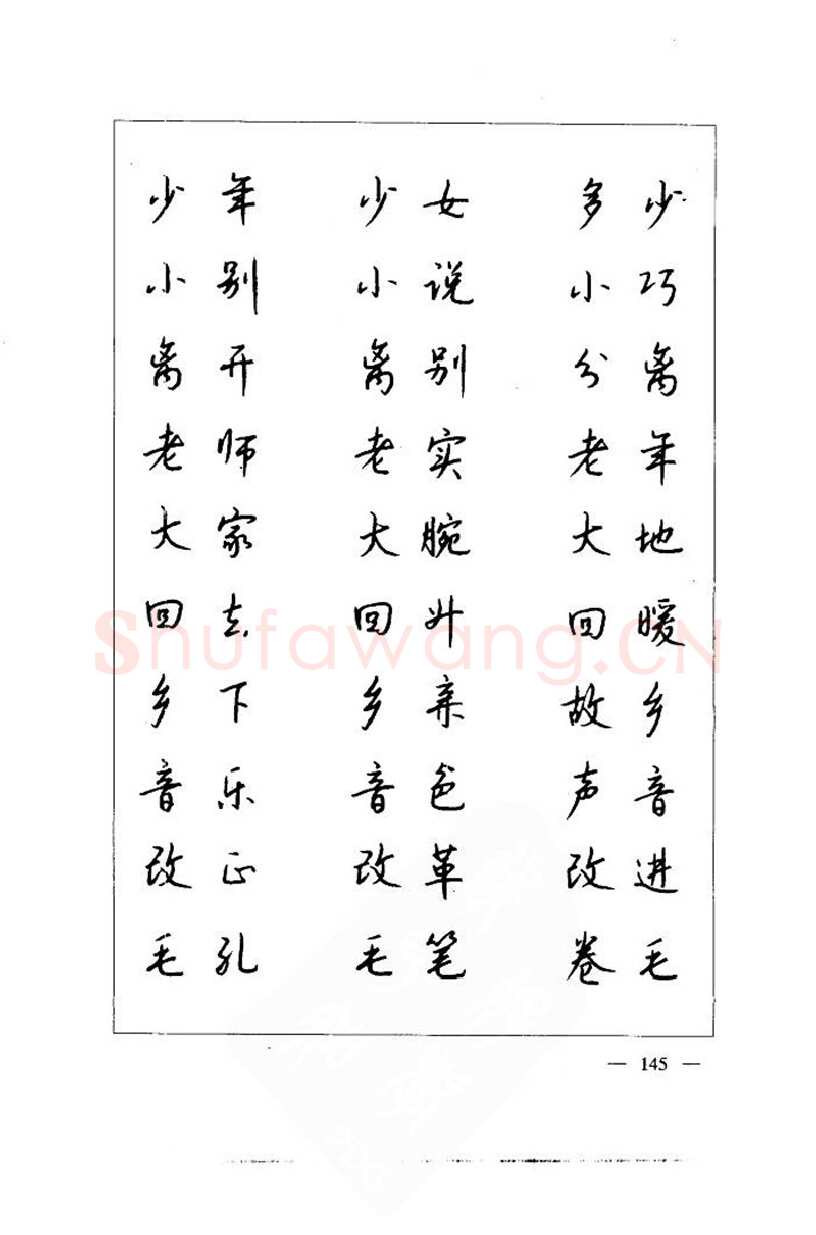 少年 少女 多少
小别 小说 小巧
离开 离别 分离
老师 老实 老年
大家 大腕 大地
回去 回升 回暖
乡下 乡亲 故乡
音乐 音色 声音
改正 改革 改进
毛孔 毛笔 卷毛
Shufawang.CN
— 145 —